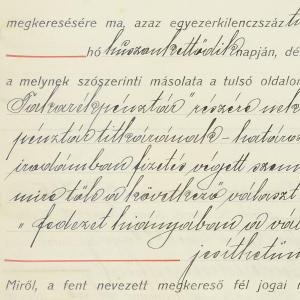 megkeresésére ma, azaz egyezerkilenczszáz
hó huszonkettődik napján, dé
a melynek szószerinti másolata a tulsó oldalon
Takarékpénztár" részére nek
pénztár titkárának - határoz
irodámban fizetés végett szem
mire tőle a következő választ
" fedezet hiányában a vál
jesíthetün
Miről, a fent nevezett megkereső fél jogai m